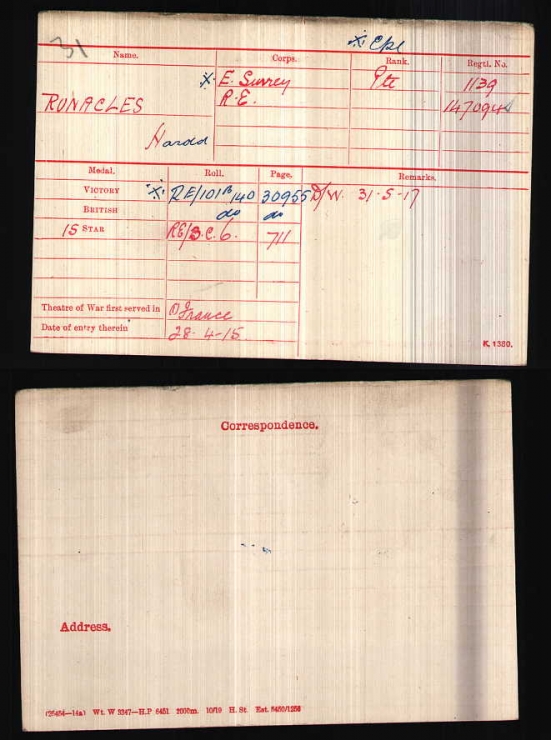 31
※ Cpl
Name. Corps. Rank. Regtl. No.
※ E. Surrey Pte 1139
RUNACLES R.E. 147094
Harold
Medal. Roll. Page. Remarks.
VICTORY ※ RE/101B/140 30955 D/W. 31-5-17
BRITISH do do
15 STAR RE/3.C.6. 711
Theatre of War first served in (1) France
Date of entry therein 28-4-15.
K. 1380.
Correspondence.
Address.
(25454—14a) Wt. W 3347—H.P 6451 2000m. 10/19 H. St. Est.